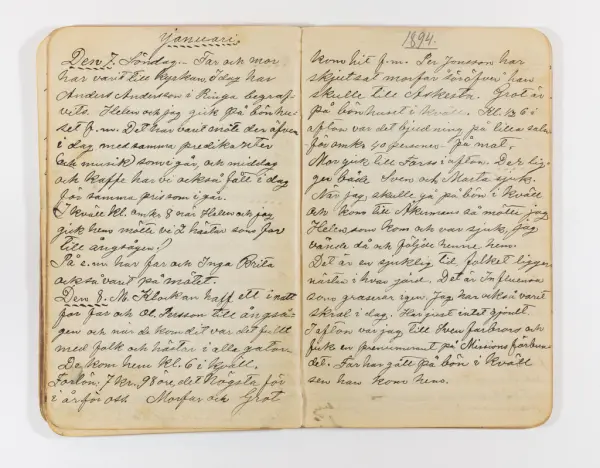 Januari.
Den 7. Söndag. Far och mor
har varit till kyrkan. I dag har
Anders Andersson i Ringa begraf-
vits. Helen och jag gick på bönhu-
set f.m. Det har varit möte der äfven
i dag med samma predikanter
(och musik) som i går, och middag
och kaffe har vi också fått i dag
för samma pris som i går.
I kväll kl. omkr 8 när Helen och jag
gick hem mötte vi 2 hästar som for
till ångsågen!
På e.m har far och Inga Brita
också varit på mötet.
Den 8. M. Klockan half ett i natt
for far och Ol. Persson till ångså-
gen och när de kom dit var det fullt
med folk och hästar i alla gator.
De kom hem kl. 6 i kväll.
Förtön. 7 kr. 98 öre, det högsta för
i år för oss Morfar och Grot
1894.
kom hit f.m. Per Jonsson har
skjutsat morfar söröfver han
skulle till Askesta. Grot är
på bönhuset i kväll. Kl. 6 i
afton var det bjudning på lilla salen
för omkr 40 personer på mat.
Mor gick till Fars i afton. Der lig-
ger både Sven och Marta sjuk.
När jag skulle gå på bön i kväll
och kom till Åkermans så mötte jag
Helen som kom och var sjuk, jag
vände då och följde henne hem.
Det är en sjuklig tid folket ligger
nästan i hvar gård. Det är Influensa
som graserar igen. Jag har också varit
skral i dag. Har just intet gjort.
I afton var jag till Sven farbrors och
fick en prenumerant på Missions förbun-
det. Far har gått på bön i kväll
sen han kom hem.